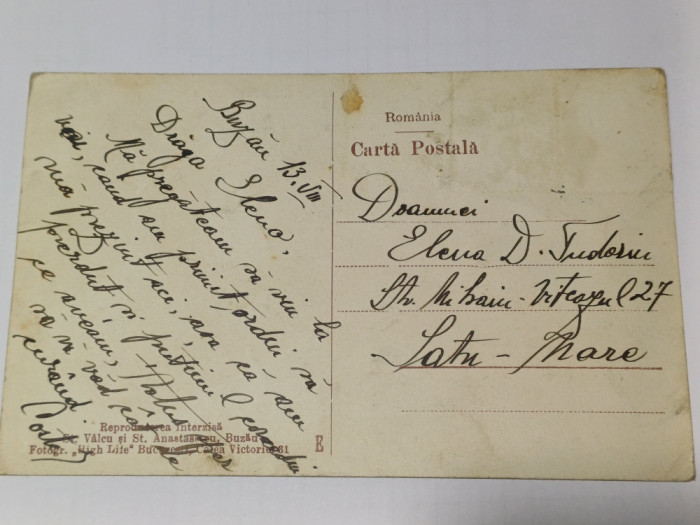 Buzău 13.VIII
Draga Elena,
Mă pregăteam să viu la
voi, când am primit ordin să
mă prezint aci, așa că am
pierdut și puținul concediu
ce aveam,
să vă văd cât de
curând
România
Cartă Postală
Doamnei
Elena D. Tudoriu
Str. Mihaiu-Viteazul 27
Satu-Mare
Reproducerea Interzisă
St. Vâlcu și St. Anastasescu, Buzău
Fotogr. „High Life" București, Calea Victoriei 61
E